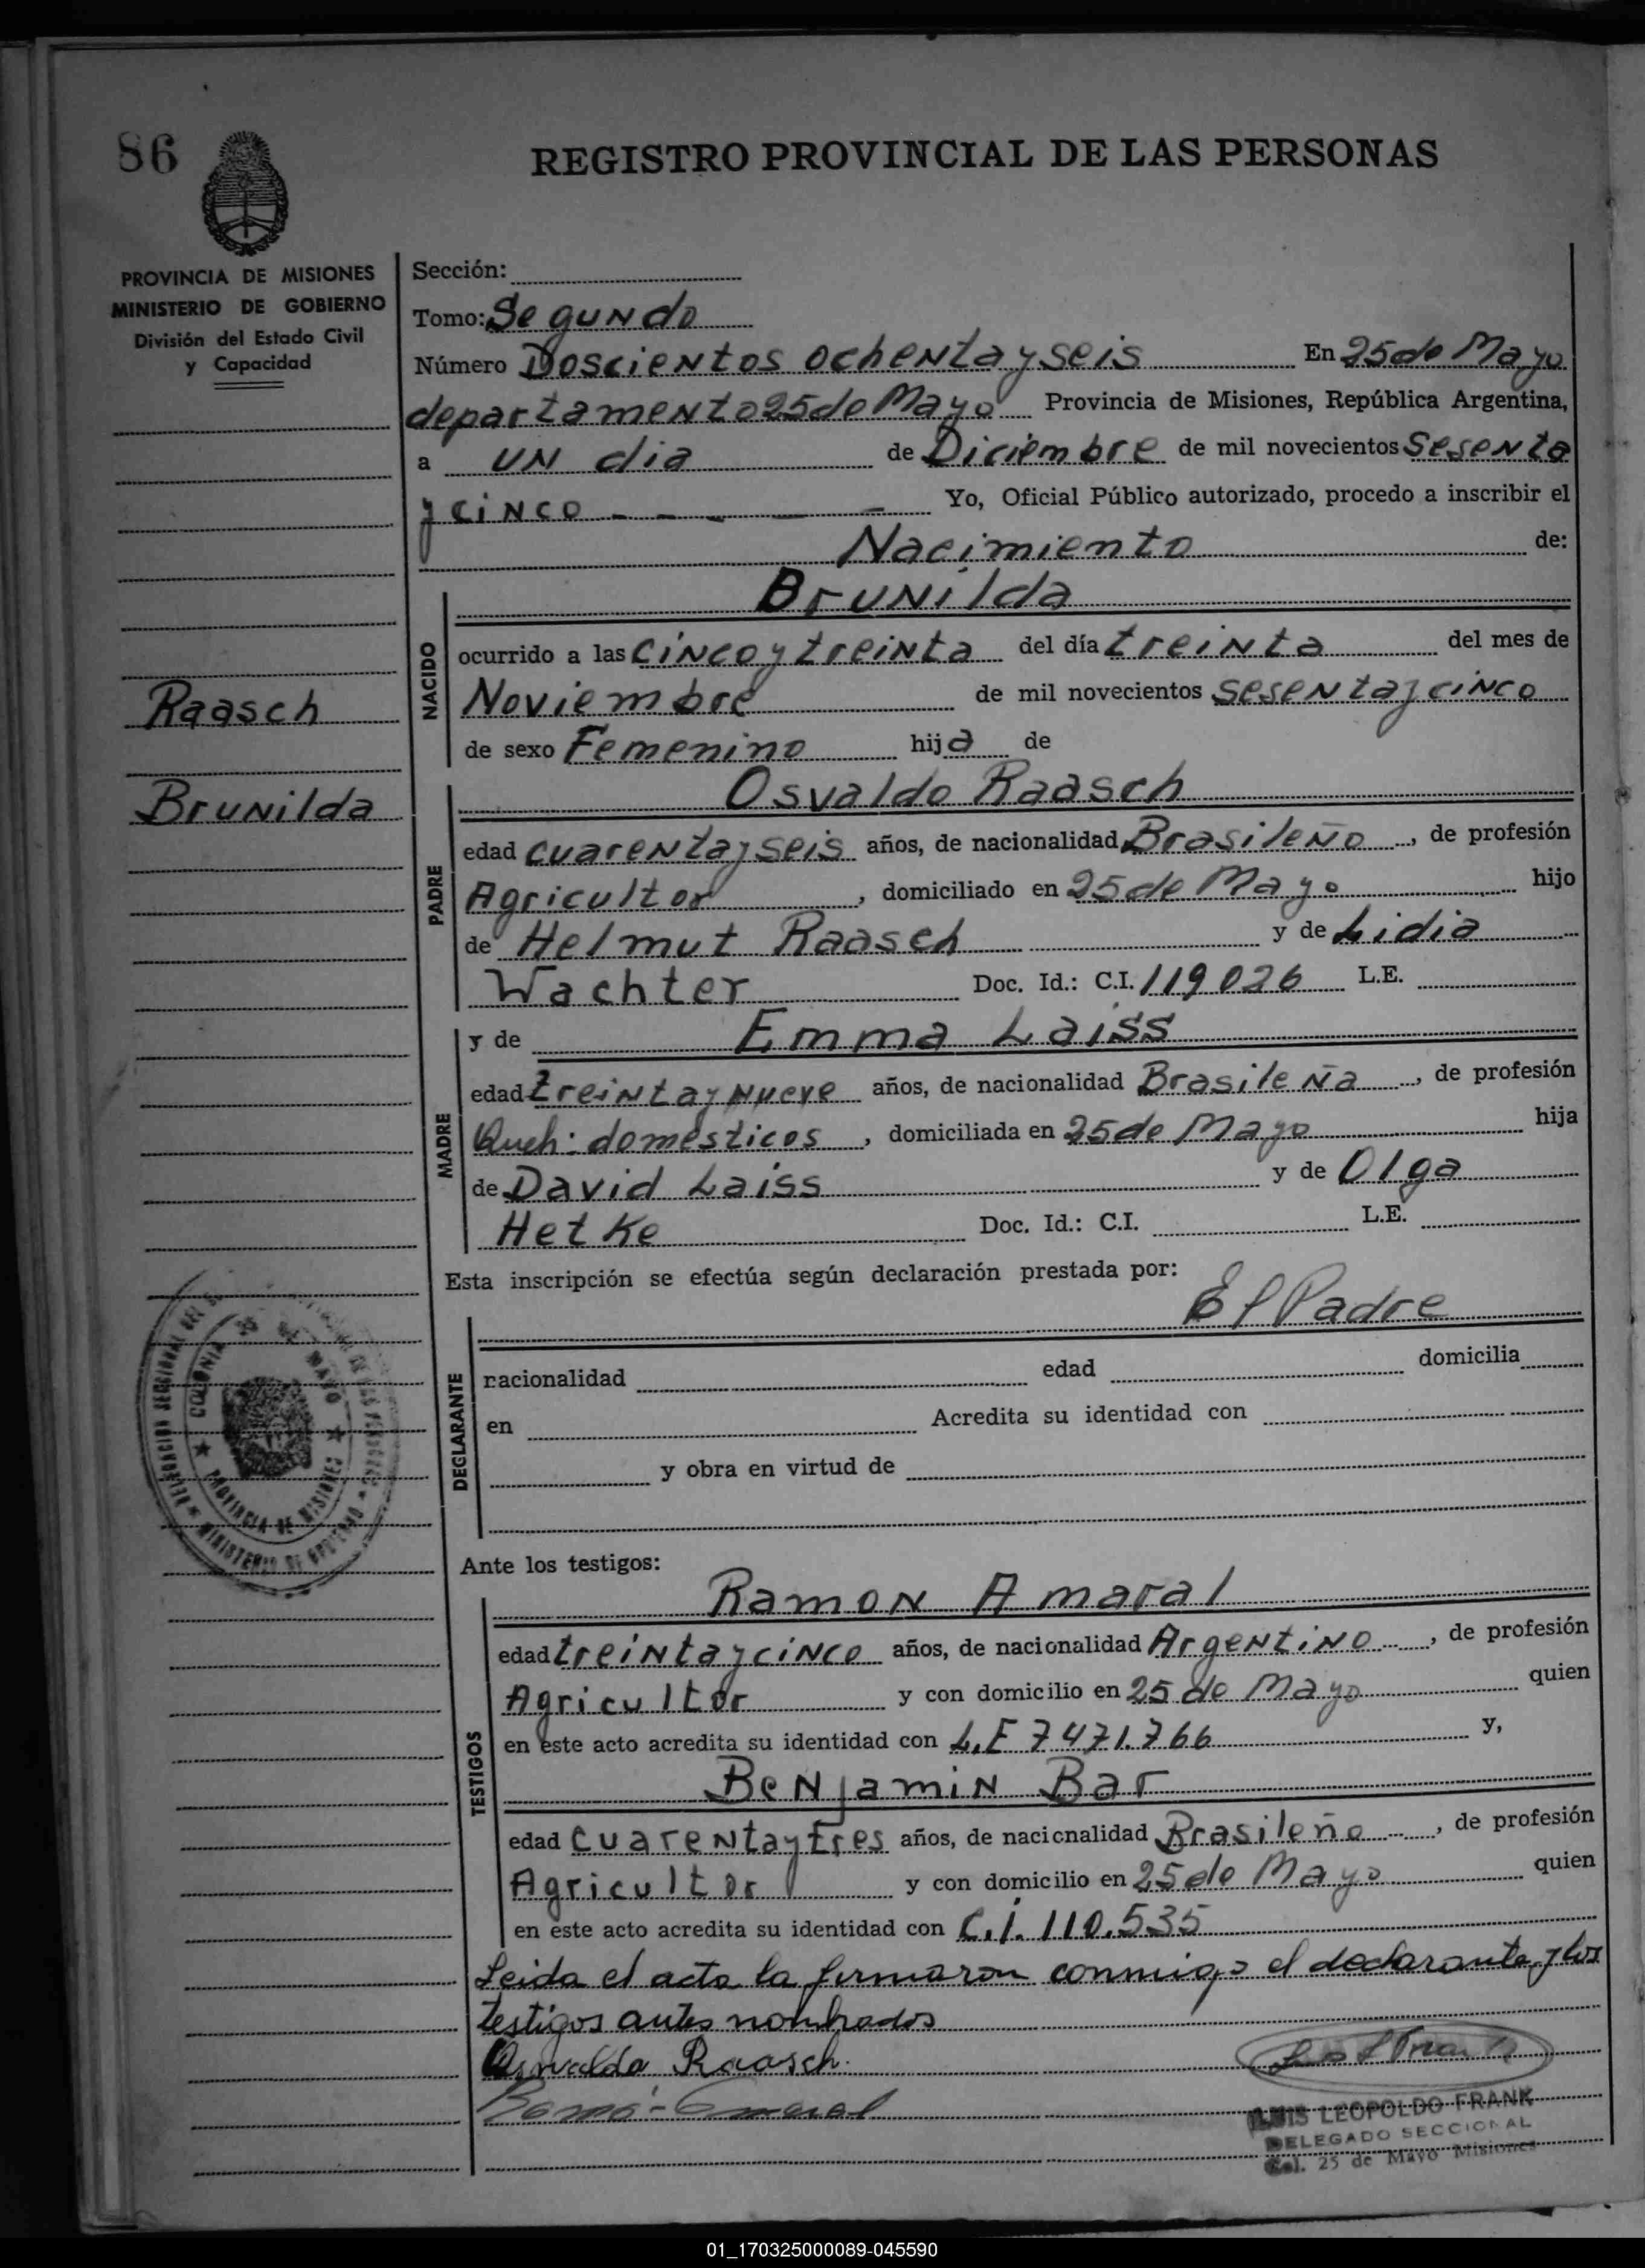 86
REGISTRO PROVINCIAL DE LAS PERSONAS
PROVINCIA DE MISIONES
MINISTERIO DE GOBIERNO
División del Estado Civil
y Capacidad
Raasch
Brunilda
Sección:
Tomo: Segundo
Número Doscientos ochenta y seis En 25 de Mayo
departamento 25 de Mayo Provincia de Misiones, República Argentina,
a un dia de Diciembre de mil novecientos sesenta
y cinco Yo, Oficial Público autorizado, procedo a inscribir el
Nacimiento de:
NACIDO
Brunilda
ocurrido a las cinco y treinta del día treinta del mes de
Noviembre de mil novecientos sesenta y cinco
de sexo Femenino hija de
PADRE
Osvaldo Raasch
edad cuarenta y seis años, de nacionalidad Brasileño, de profesión
Agricultor, domiciliado en 25 de Mayo hijo
de Helmut Raasch y de Lidia
Wachter Doc. Id.: C.I. 119026 L.E.
MADRE
y de Emma Laiss
edad treinta y nueve años, de nacionalidad Brasileña, de profesión
Queh: domesticos, domiciliada en 25 de Mayo hija
de David Laiss y de Olga
Hetke Doc. Id.: C.I. L.E.
Esta inscripción se efectúa según declaración prestada por:
El Padre
DECLARANTE
nacionalidad edad domicilia
en Acredita su identidad con
y obra en virtud de
COLONIA 25 DE MAYO
PROVINCIA DE MISIONES
DELEGACION SECCIONAL DEL
MINISTERIO DE GOBIERNO
Ante los testigos:
TESTIGOS
Ramon Amaral
edad treinta y cinco años, de nacionalidad Argentino, de profesión
Agricultor y con domicilio en 25 de Mayo quien
en este acto acredita su identidad con L.E 7471.766 y,
Benjamin Bar
edad cuarenta y tres años, de nacionalidad Brasileño, de profesión
Agricultor y con domicilio en 25 de Mayo quien
en este acto acredita su identidad con C.i. 110.535
Leida el acta la firmaron conmigo el declarante y los
testigos antes nombrados
Osvaldo Raasch
LUIS LEOPOLDO FRANK
DELEGADO SECCIONAL
Col. 25 de Mayo Misiones
01_170325000089-045590